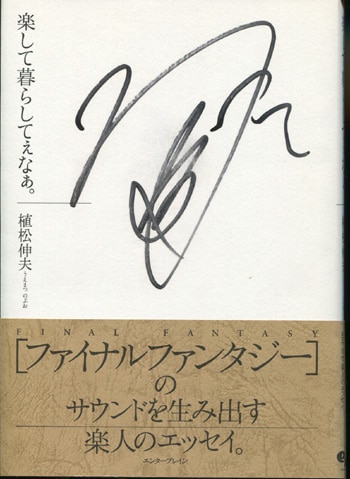 楽して暮らしてぇなぁ。
植松伸夫
うえまつ のぶお
FINAL FANTASY
[ファイナルファンタジー]
の
サウンドを生み出す
楽人のエッセイ。
エンターブレイン